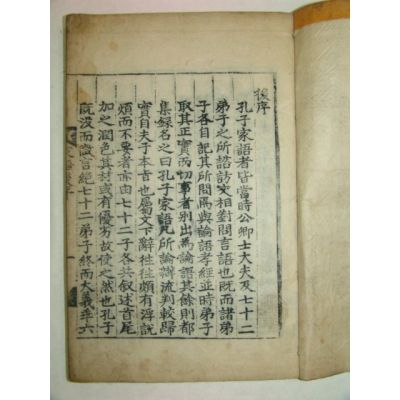 後序
孔子家語者皆當時公卿士大夫及七十二
弟子之所諮訪交相對問言語也既而諸弟
子各自記其所問焉與論語孝經並時弟子
取其正實而切事者別出爲論語其餘則都
集録名之曰孔子家語凡所論辯流判較歸
實自夫子本旨也屬文下辭往往頗有浮說
煩而不要者亦由七十二子各共叙述首尾
加之潤色其材或有優劣故使之然也孔子
既没而微言絶七十二弟子終而大義乖六